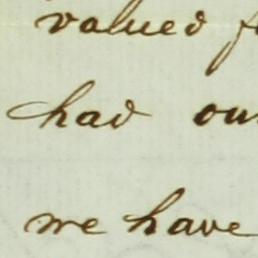 valued
had
we have